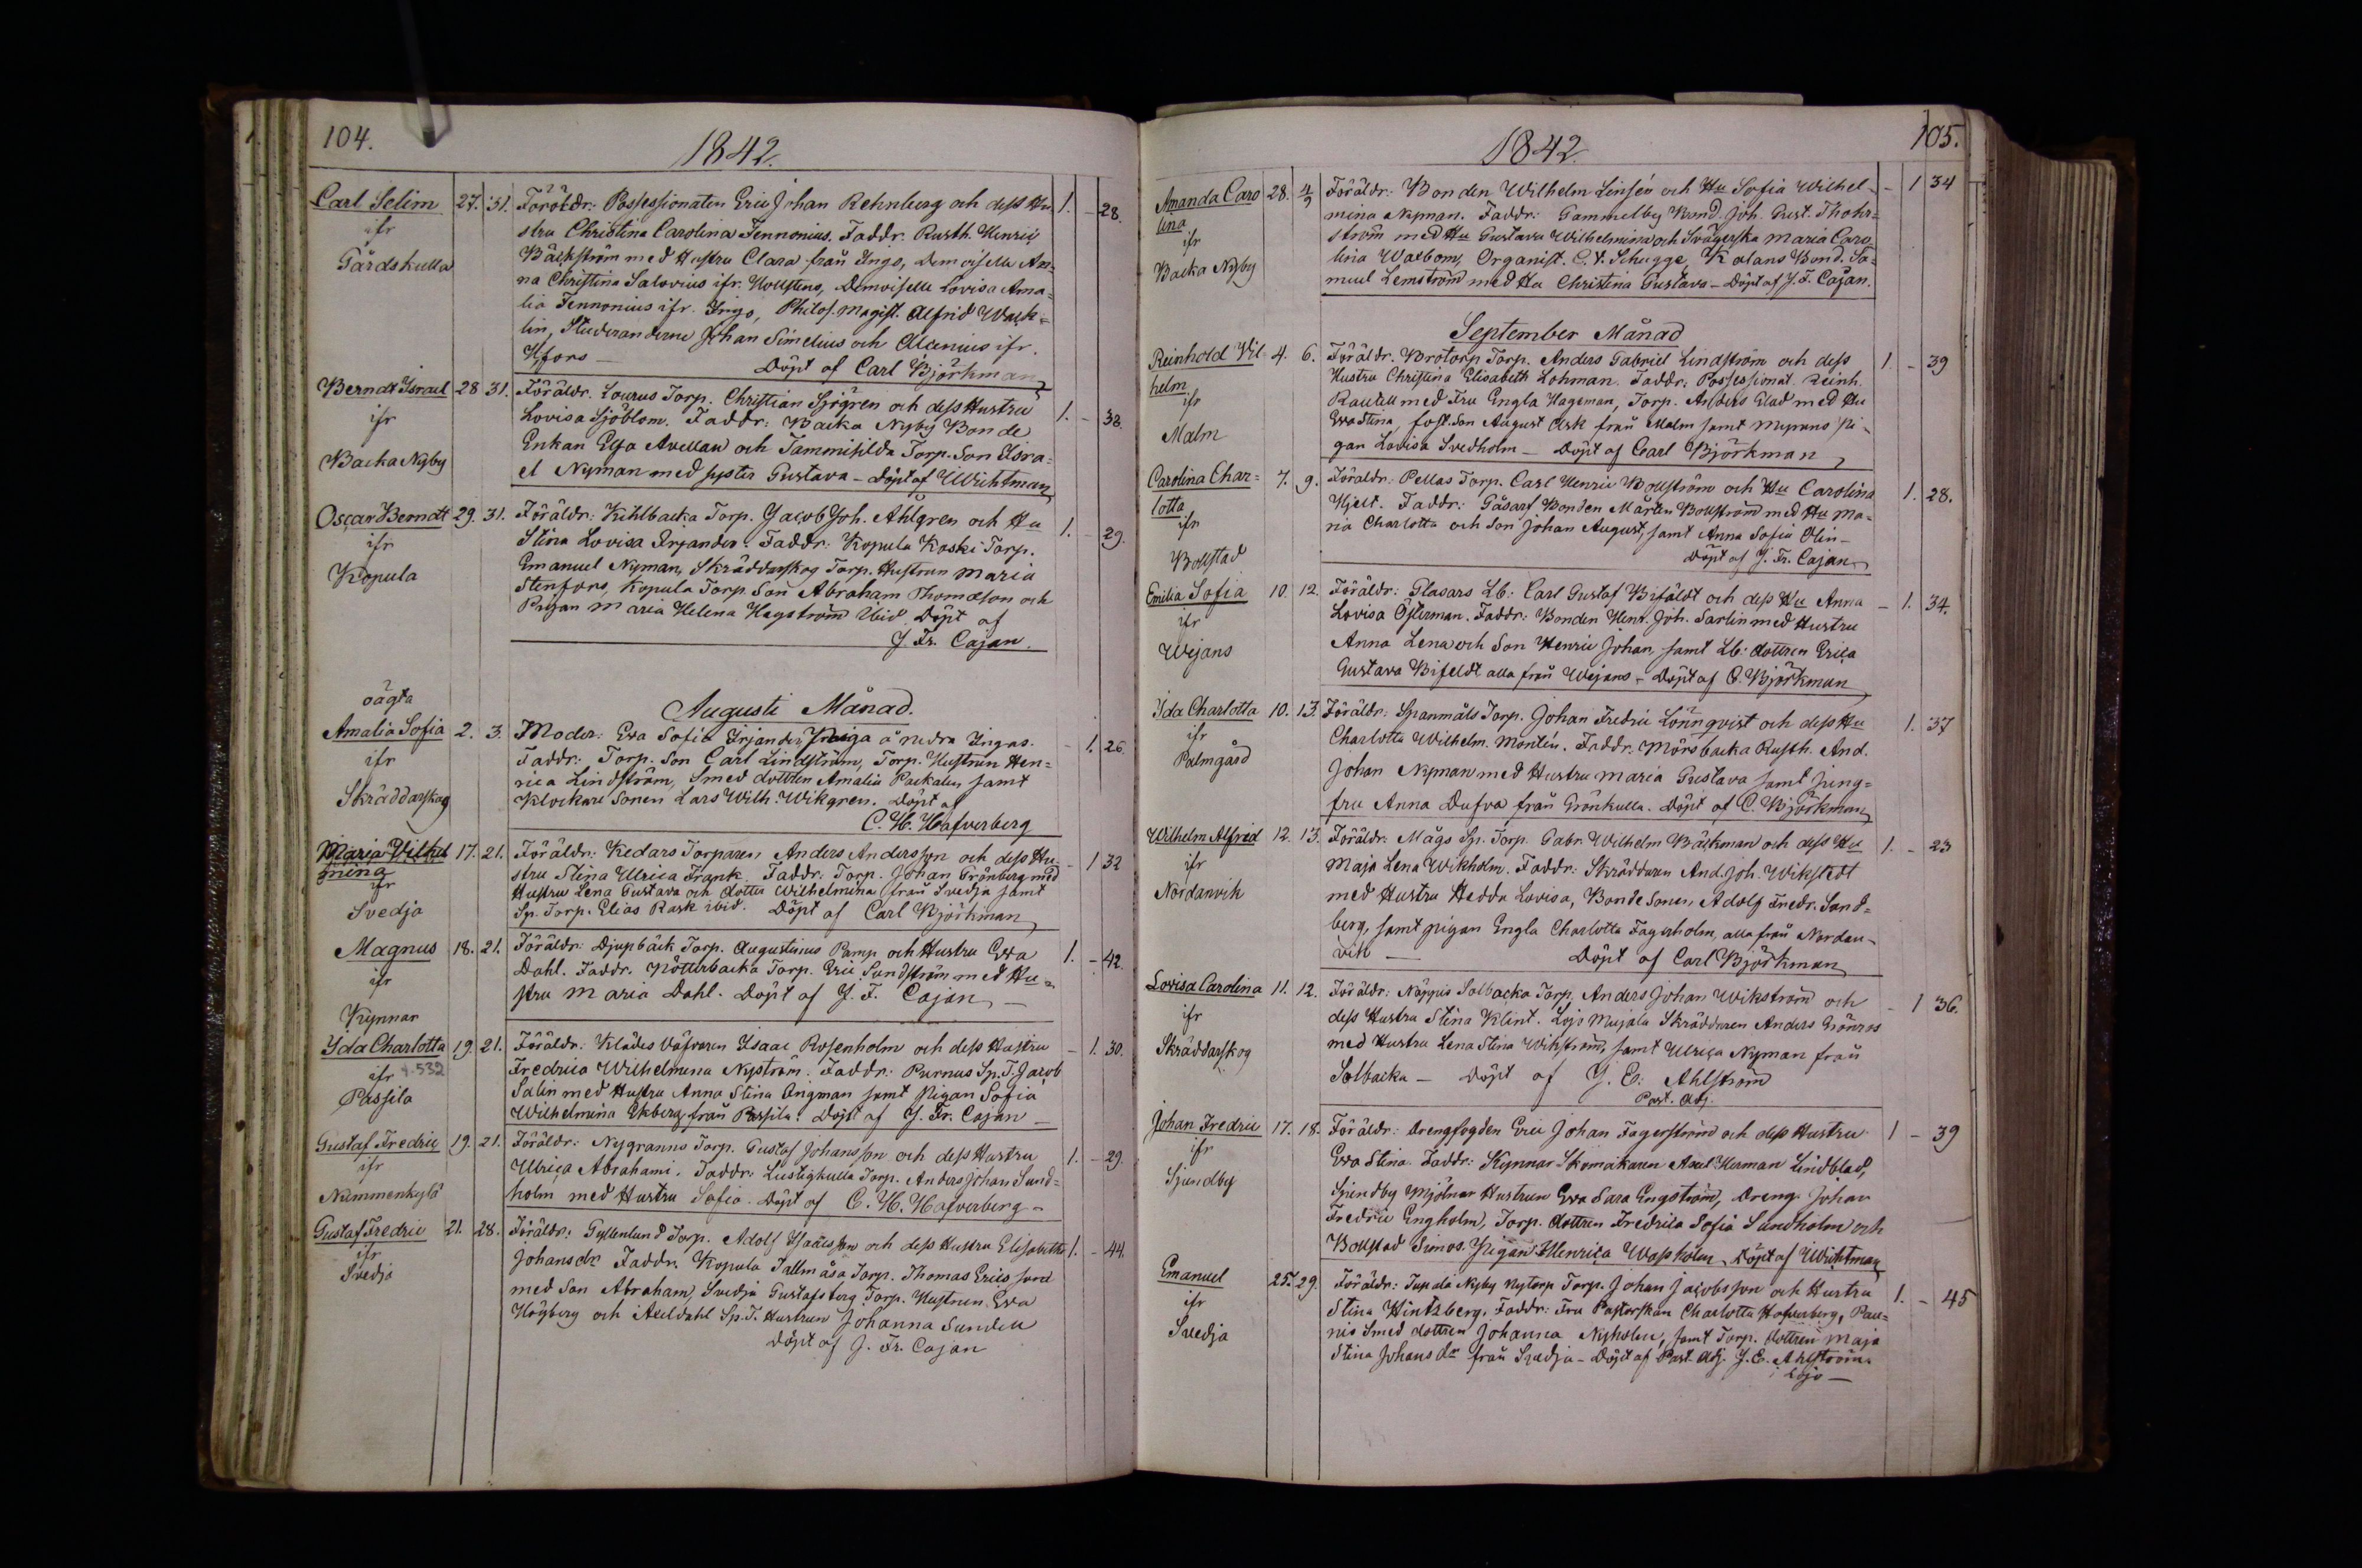 104.
1842.
Carl Selim 27. 31. Föräldr: Possessionaten Eric Johan Rehnberg och dess Hu 1. – 28.
ifr stru Christina Carolina Fennonius. Faddr. Rusth. Henric
Gårdskulla Bäckström med Hustru Clara från Ingo, Demoiselle An=
na Christina Salovius ifr. Hollstens, Demoiselle Lovisa Ama=
lia Fennonius ifr. Ingo, Philos. Magist. Alfrid Wach=
lin, Studeranderne Johan Simelius och Alcenius ifr.
Hfors – Döpt af Carl Björkman
Berndt Israel 28 31. Föräldr. Lourus Torp. Christian Sjögren och dess Hustru 1. – 38.
ifr Lovisa Sjöblom. Faddr: Backa Nyby Bonde
Backa Nyby Enkan Ewa Avellan och Tammisilda Torp. Son Isra=
el Nyman med syster Gustava – Döpt af Wichtman
Oscar Berndt 29. 31. Föräldr: Kihlbacka Torp. Jacob Joh. Ahlgren och Hu 1. – 29.
ifr Stina Lovisa Irjander. Faddr: Kopula Koski Torp.
Kopula Emanuel Nyman, Skräddarskog Torp. Hustrun Maria
Stenfors, Kopula Torp. Son Abraham Thomasson och
Pigan Maria Helena Hagström Ibid. Döpt af
J. Fr. Cajan.
oägta
Augusti Månad.
Amalia Sofia 2. 3. Moder: Eva Sofia Irjander Piga å nedra Ingas. – 1. 26.
ifr Faddr: Torp. Son Carl Lindström, Torp. Hustrun Hen=
Skräddarskog rica Lindström, Smed dottren Amalia Packalen samt
Klockare Sonen Lars Wilh. Wikgren. Döpt af
C. H. Hafverberg
Maria Vilhel 17. 21. Föräldr: Kedars Torparen Anders Andersson och dess Hu= – 1 32
mina stru Stina Ulrica Frank. Faddr: Torp. Johan Grönberg med
ifr Hustru Lena Gustava och dotter Wilhelmina från Svedja samt
Svedja Sp. Torp. Elias Rask ibid. Döpt af Carl Björkman
Magnus 18. 21. Föräldr: Djupbäck Torp. Augustinus Pamp och Hustru Ewa 1. – 42.
ifr Dahl. Faddr. Nötterbacka Torp. Eric Sundström med Hu=
Kynnar stru Maria Dahl. Döpt af J. F. Cajan –
Ida Charlotta 19. 21. Föräldr: Klädes Väfvaren Isaac Rosenholm och dess Hustru – 1. 30.
ifr 4.532 Fredrica Wilhelmina Nyström. Faddr: Purnus Sp. T. Jacob
Passila Salin med Hustru Anna Stina Engman samt Pigan Sofia
Wilhelmina Ekberg från Passila. Döpt af J. Fr. Cajan –
Gustaf Fredric 19. 21. Föräldr: Nygranns Torp. Gustaf Johansson och dess Hustru 1. – 29.
ifr Ulrica Abrahami. Faddr: Lustigkulla Torp. Anders Johan Sund=
Nummenkylä holm med Hustru Sofia. Döpt af C. H. Hafverberg –
Gustaf Fredric 21. 28. Föräldr: Gyllenlund Torp. Adolf Isaacsson och dess Hustru Elisabeth 1. – 44.
ifr Johansdr. Faddr. Kopula Tallmåsa Torp. Thomas Ericsson
Svedja med Son Abraham, Svedja Gustafsberg Torp. Hustrun Ewa
Högberg och Axeldahl Sp. T. Hustrun Johanna Sundell
Döpt af J. Fr. Cajan
105.
1842
Amanda Caro 28. 4/9 Föräldr: Bonden Wilhelm Linsén och Hu Sofia Wilhel – 1 34
lina mina Nyman. Faddr: Gammelby Bond. Joh. Gust. Thohr=
ifr ström med Hu Gustava Wilhelmina och Svägerska Maria Caro
Backa Nyby lina Walbom, Organist. C. F. Schugge, Kalans Bond. Sa=
muel Lemström med Hu Christina Gustava – Döpt af J. F. Cajan.
September Månad
Reinhold Vil 4. 6. Föräldr. Brotorp Torp. Anders Gabriel Lindström och dess 1. – 39
helm Hustru Christina Elisabeth Lohman. Faddr: Possessionat. Reinh.
ifr Rautell med Fru Engla Hageman, Torp. Anders Glad med Hu
Malm Ewa Stina, fost. Son August Ask från Malm samt Myrans Pi=
gan Lovisa Svedholm – Döpt af Carl Björkman
Carolina Char= 7. 9. Föräldr: Pellas Torp. Carl Henric Bollström och Hu Carolina 1. 28.
lotta Hjelt. Faddr: Gåsarf Bonden Mårten Bollström med Hu Ma=
ifr ria Charlotta och Son Johan August, samt Anna Sofia Olin –
Bollstad Döpt af J. Fr. Cajan
Emilia Sofia 10. 12. Föräldr: Glasars Lb: Carl Gustaf Bifäldt och dess Hu Anna – 1. 34.
ifr Lovisa Österman. Faddr: Bonden Henr. Joh. Sarlin med Hustru
Wejans Anna Lena och Son Henric Johan, samt Lb: dottren Erica
Gustava Bifeldt alla från Wejans – Döpt af C. Björkman
Ida Charlotta 10. 13. Föräldr: Spanmåls Torp. Johan Fredric Lönnqvist och dess Hu 1. 37
ifr Charlotta Wilhelm. Montin. Faddr: Mörsbacka Rusth. And.
Palmgård Johan Nyman med Hustru Maria Gustava samt jung=
fru Anna Dufva från Grönkulla. Döpt af C. Björkman
Wilhelm Alfrid 12. 13. Föräldr: Mågs Sp. Torp. Gabr. Wilhelm Bäckman och dess Hu 1. – 23
ifr Maja Lena Wikholm. Faddr: Skräddaren And. Joh. Wikstedt
Nordanvik med Hustru Hedda Lovisa, Bonde Sonen Adolf Fredr. Sand=
berg, samt pigan Engla Charlotta Fagerholm, alla från Nordan=
vik – Döpt af Carl Björkman
Lovisa Carolina 11. 12. Föräldr: Näppis Solbacka Torp. Anders Johan Wikström och – 1 36.
ifr dess Hustru Stina Klint. Lojo Mujala Skräddaren Anders Grönroos
Skräddarskog med Hustru Lena Stina Wikström, samt Ulrica Nyman från
Solbacka – Döpt af J. E. Ahlström
Past. Adj.
Johan Fredric 17. 18. Föräldr: Drengfogden Eric Johan Fagerström och dess Hustru 1 – 39
ifr Ewa Stina. Faddr: Kynnar Skomakaren Axel Herman Lindblad,
Sjundby Sjundby Mjölnar Hustrun Ewa Sara Engström, Dreng. Johan
Fredric Engholm, Torp. dottren Fredrica Sofia Sundholm och
Bollstad Simos. Pigan Henrica Wassholm. Döpt af Wichtman
Emanuel 25. 29. Föräldr: Supala Nyby Nytorp Torp. Johan Jacobsson och Hustru 1. – 45
ifr Stina Hintzberg. Faddr: Fru Pastorskan Charlotta Hafverberg, Pau=
Svedja nis Smed dottren Johanna Nyholm, samt Torp. dottren Maja
Stina Johans dr från Svedja – Döpt af Past. Adj. J. E. Ahlström
i Lojo –